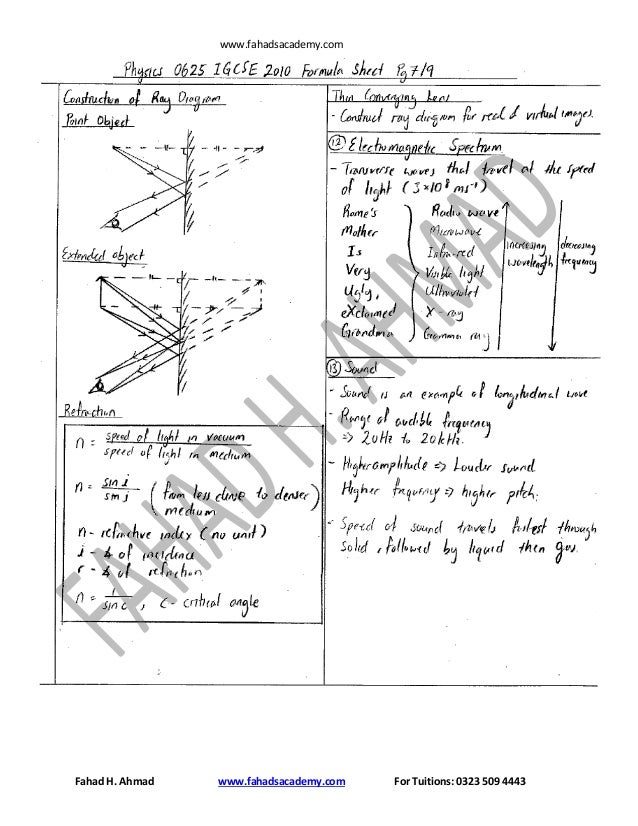 www.fahadsacademy.com
Physics 0625 IGCSE 2010 Formula Sheet Pg 7/9
Construction of Ray Diagram
Point Object
Extended object
Refraction
n = speed of light in vacuum
speed of light in medium
n = sin i
sin j
( from less dense to denser
medium )
n - refractive index ( no unit )
i - ∡ of incidence
r - ∡ of refraction
n = 1
sin c , C - critical angle
Thin Converging Lens
- Construct ray diagram for real & virtual images.
(12) Electromagnetic Spectrum
- Transverse waves that travel at the speed
of light ( 3×10⁸ ms⁻¹ )
Rome's } Radio wave
Mother Microwave
Is Infra-red
Very Visible light
Ugly, Ultraviolet
eXclaimed X - ray
Grandma Gramma ray
increasing
wavelength
decreasing
frequency
(13) Sound
- Sound is an example of longitudinal wave
- Range of audible frequency
=> 20Hz to 20kHz.
- Higher amplitude => Louder sound
Higher frequency => higher pitch.
- Speed of sound travels fastest through
solid, followed by liquid then gas.
FAHAD H. AHMAD
Fahad H. Ahmad www.fahadsacademy.com For Tuitions: 0323 509 4443